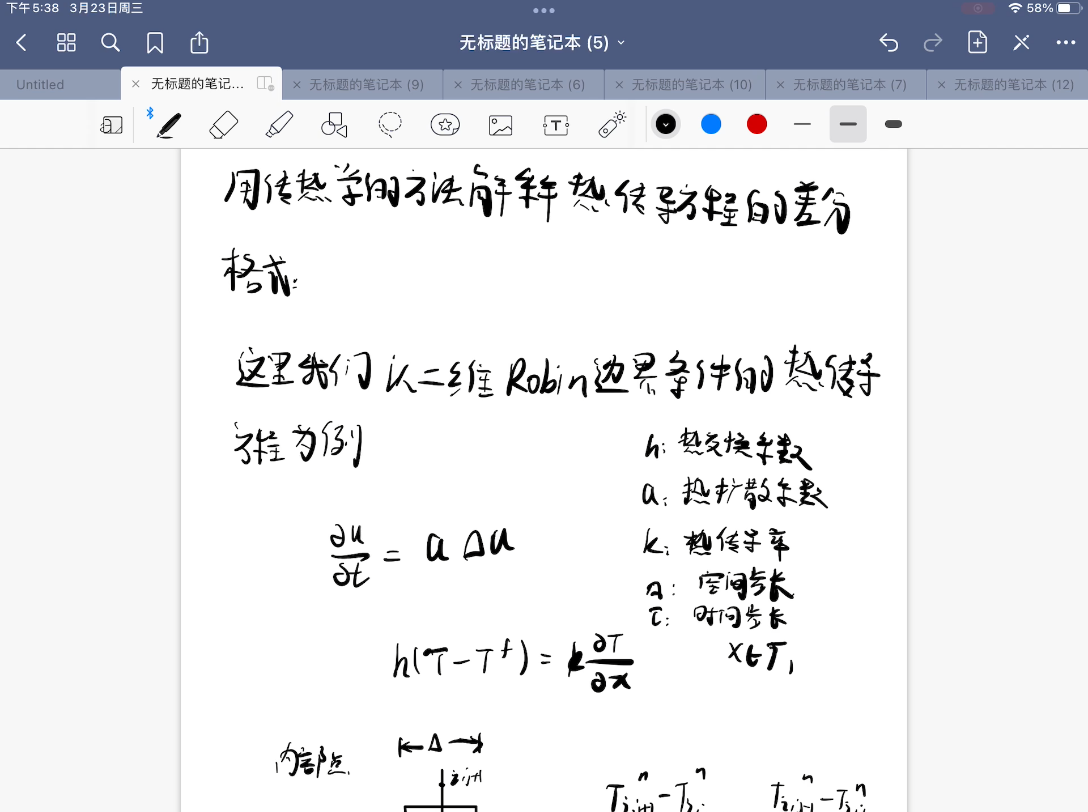 下午5:38 3月23日周三
58%
无标题的笔记本 (5)
Untitled
无标题的笔记...
无标题的笔记本 (9)
无标题的笔记本 (6)
无标题的笔记本 (10)
无标题的笔记本 (7)
无标题的笔记本 (12)
用传热学的方法解释热传导方程的差分
格式:
这里我们以二维Robin边界条件的热传导
方程为例
h: 热交换系数
a: 热扩散系数
k: 热传导率
∂u/∂t = a Δu
Δ: 空间步长
τ: 时间步长
h(T-T^f) = k ∂T/∂x
x∈Γ,
内部点
Δ
i,j+1
T_{i,j+1}^n - T_{i,j}^n